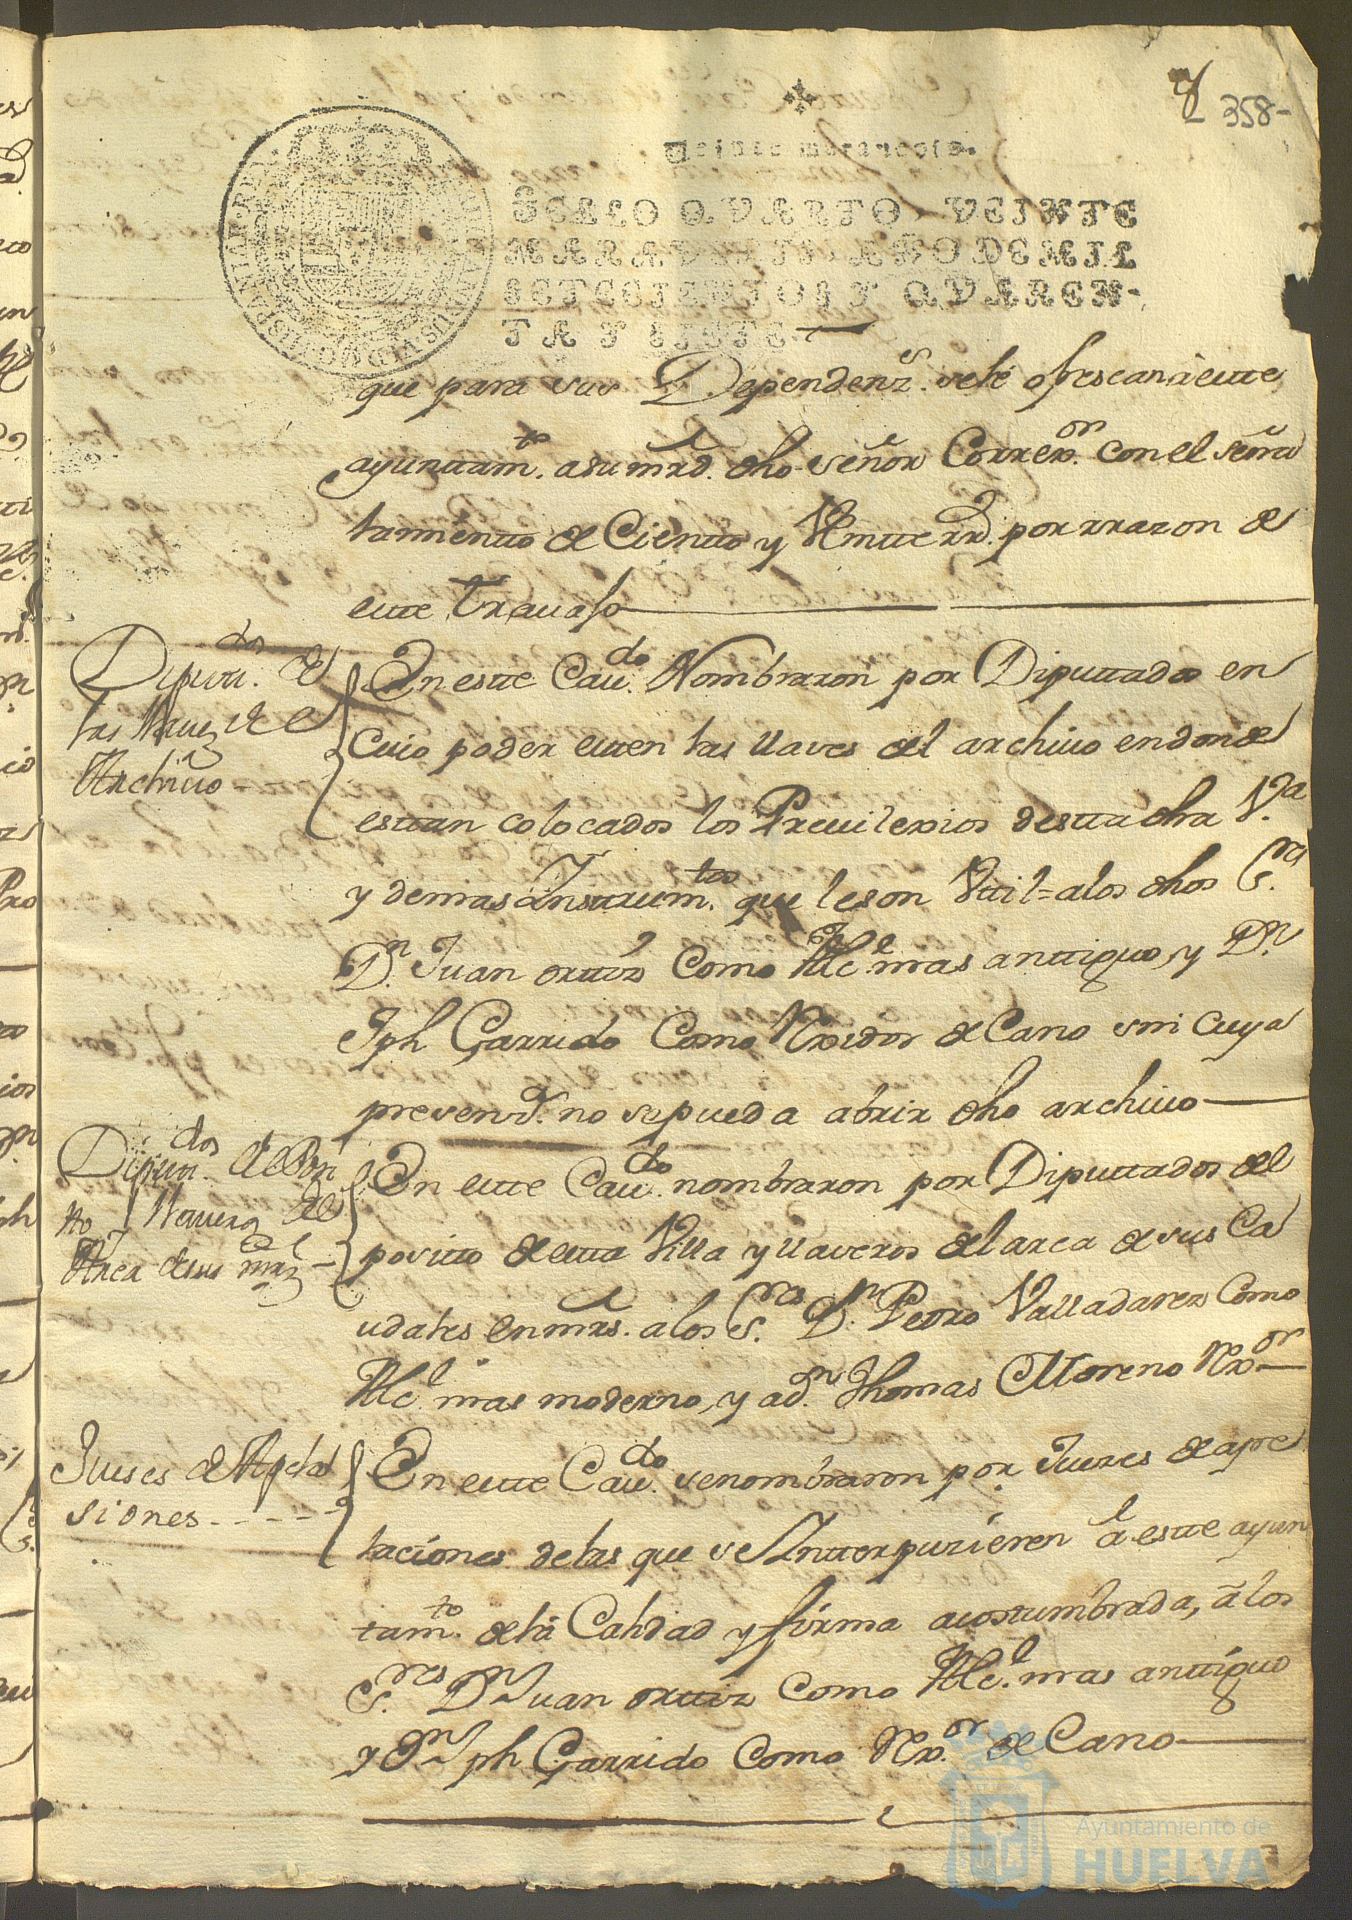 358-
Veinte maravedis.
SELLO QVARTO, VEINTE
MARAVEDIS, AÑO DE MIL
SETECIENTOS Y QVAREN-
TA Y SIETE.
que para sus Dependenz.s sele ofrescan âeste
ayuntam.to asu mrd. dho señor Correx.or con el señala
tamiento de Ciento y Veinte rr.d por rrazon de
este travajo
Diputa.dos de
las llaves de el
Archivo
En este Cau.do Nombraron por Diputtados en
Cuio poder esten las llaves del archivo endonde
esttan colocados los Previlexios desta dha V.a
y demas Instrum.tos que leson Vtil = alos dhos S.res
D.n Juan orttiz Como Alc.e mas anttiguo, y D.n
Jph Garrido Como Rexidor de Cano sin cuya
presenz.a no sepueda abrir dho archivo
Diputa.dos del Posi
to y llaveros del
Arca desus Cau
mrs
En este Cau.do nombraron por Diputtados del
posito de esta Villa y llaveros del arca de sus Ca
udales en mrs. a los S.res D.n Pedro Valladares Como
Alc.e mas moderno, y ad.n Thomas Moreno Rx.or
Jueses de Apela
siones
En este Cau.do senombraron por Juezes de ape
laciones delas que se Intterpuzieren â este ayun
tam.to dela Calidad y firma acostumbrada, â los
S.res D.n Juan orttiz Como Alc.e mas anttiguo
y D.n Jph Garrido Como Rx.or de Cano
Ayuntamiento de
HUELVA